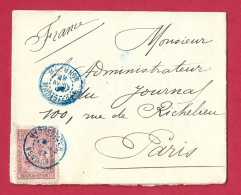 France
Monsieur
l'Administrateur
du Journal
100, rue de Richelieu
Paris